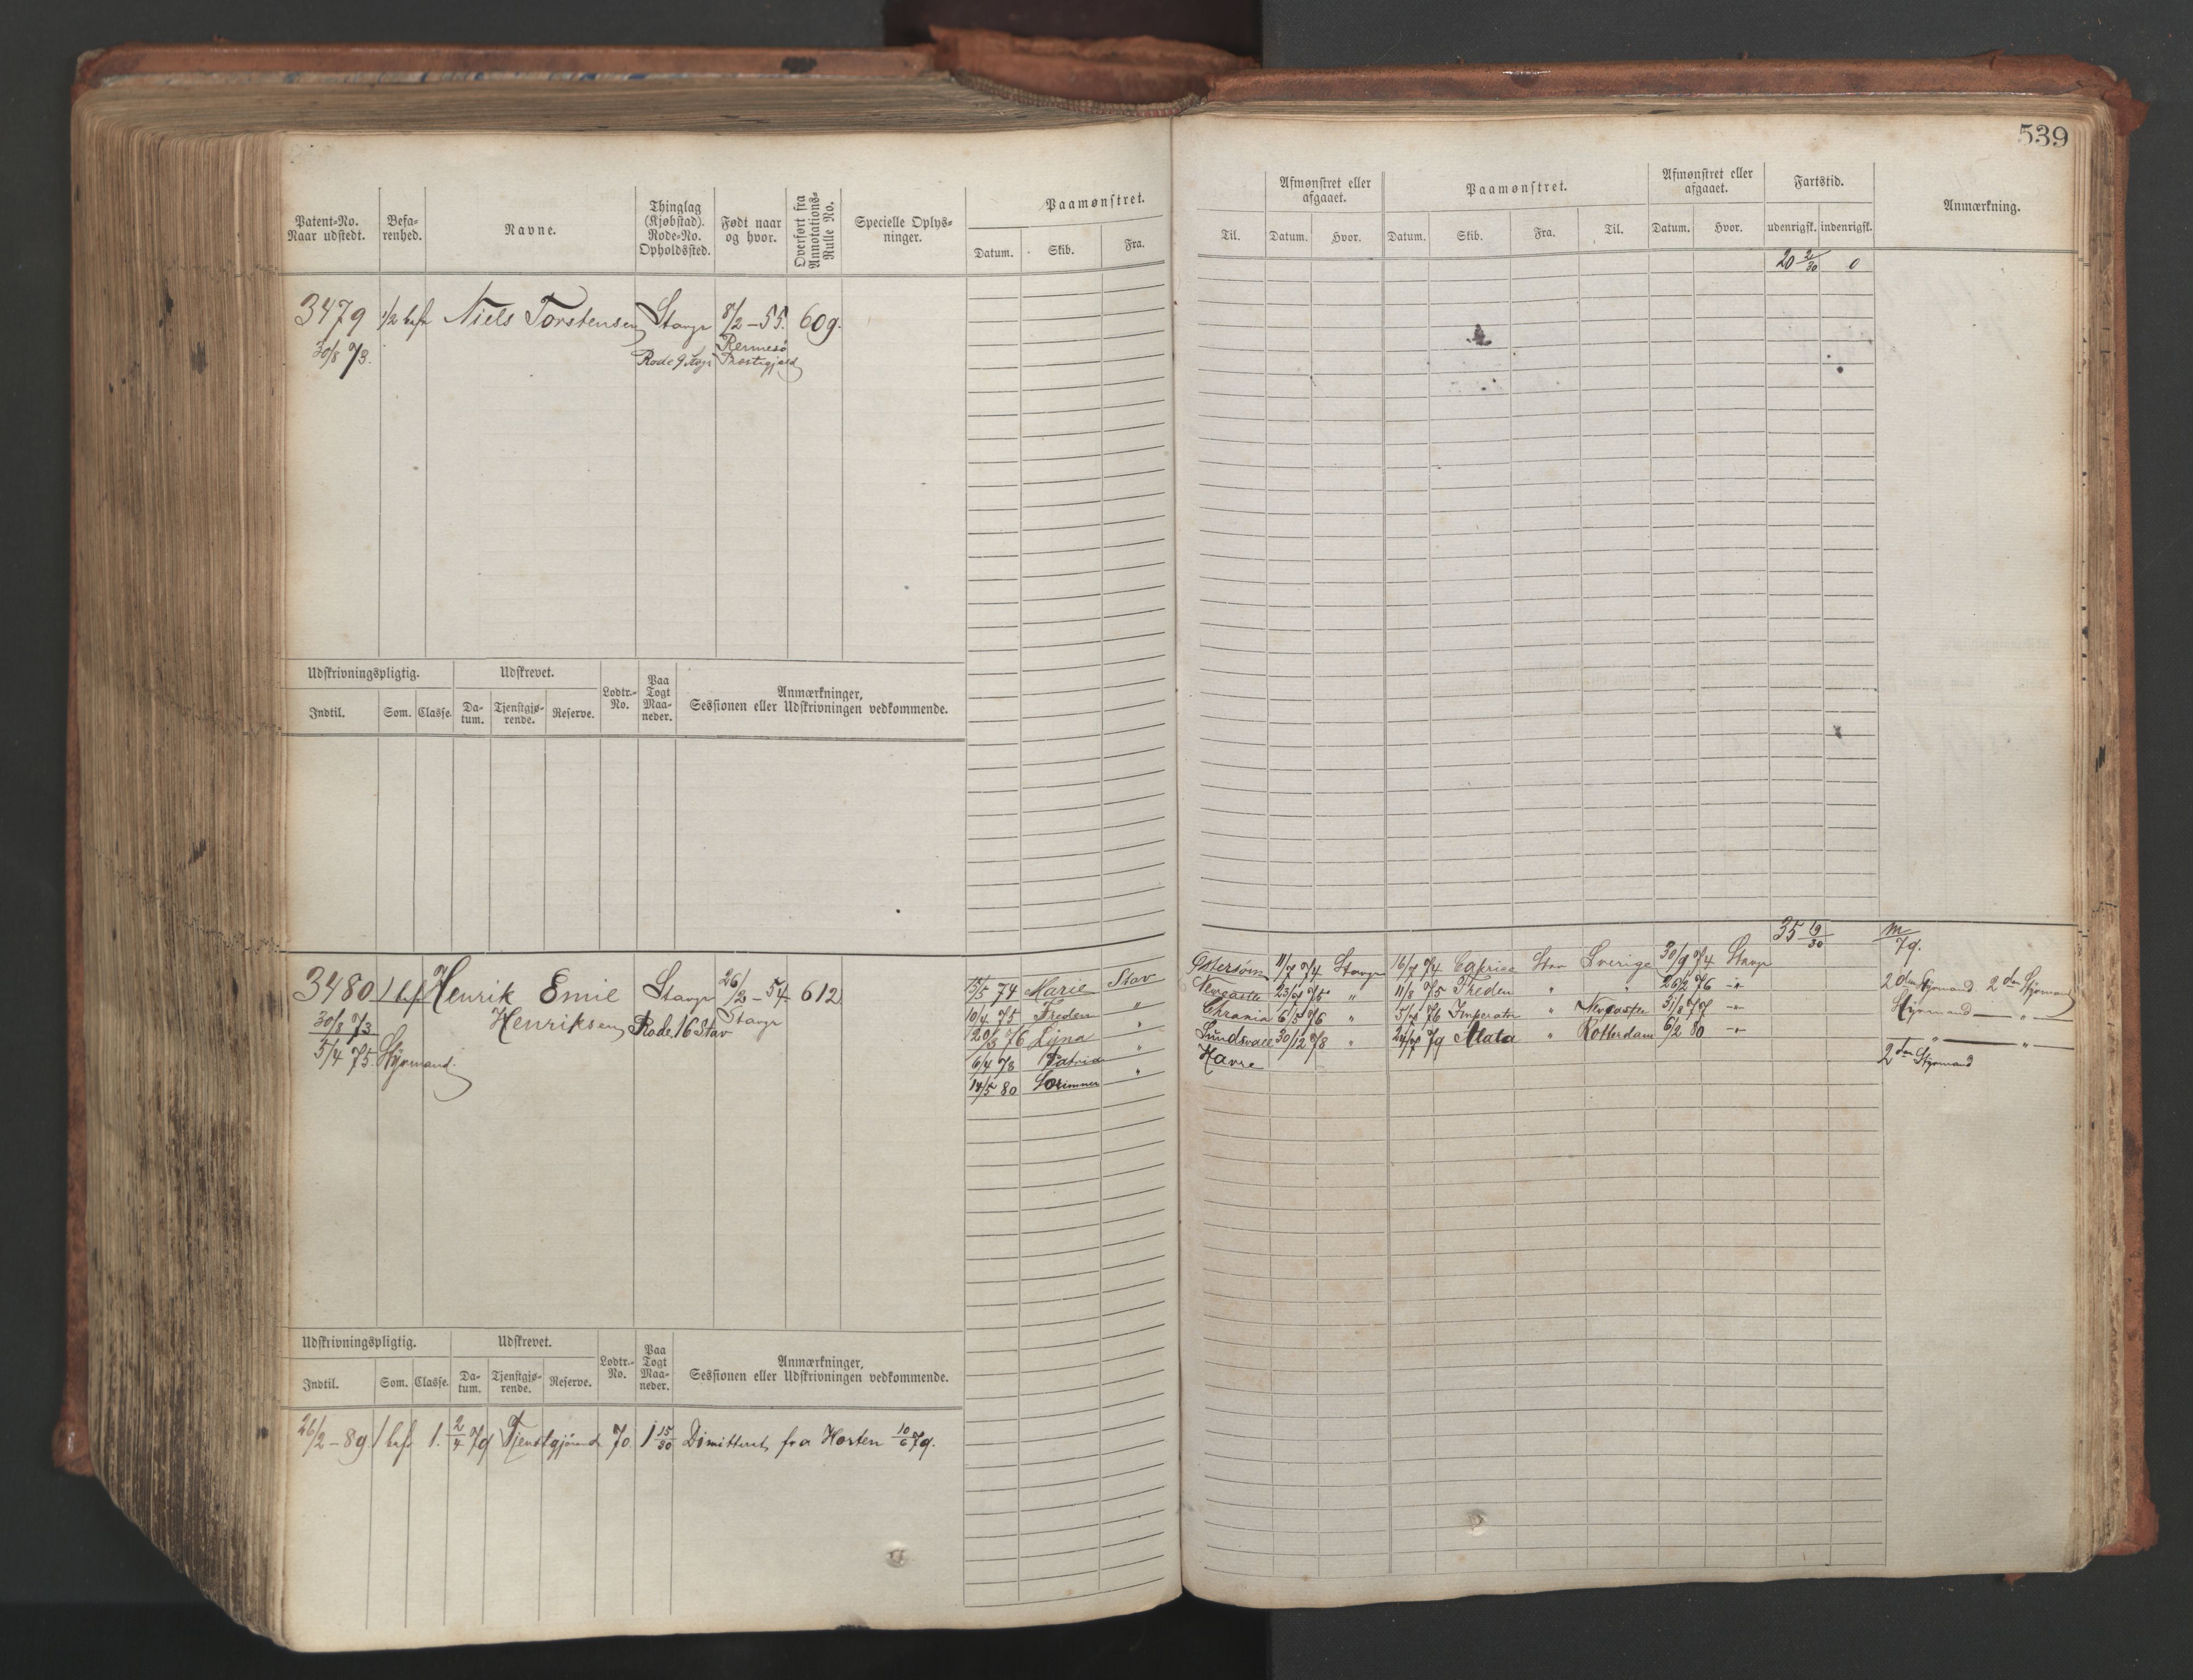 539
Patent-No. Naar udstedt.
Befarenhed.
Navne.
Thinglag (Kjøbstad). Rode-No. Opholdssted.
Født naar og hvor.
Overført fra Annotations-Rulle No.
Specielle Oplysninger.
Paamønstret.
Datum. Skib. Fra.
Til.
Afmønstret eller afgaaet.
Datum. Hvor.
Paamønstret.
Datum. Skib. Fra. Til.
Afmønstret eller afgaaet.
Datum. Hvor.
Fartstid.
udenrigsk. indenrigsk.
Anmærkning.
20 2/30 0
3479 1/2 bef Niels Torstensen Stavgr 8/2-55. 609.
30/8 73. Rode 9 Stvgr Rennesø Præstegjeld
Udskrivningspligtig. Udskrevet. Lodtr.-No. Paa Togt Maaneder. Anmærkninger, Sessionen eller Udskrivningen vedkommende.
Indtil. Som. Classe. Datum. Tjenstgjørende. Reserve.
35 19/30
3480 1 bef Henrik Emil Stavgr 26/2-54 612
30/8 73 Henriksen Rode 16 Stav Stavgr
5/4 75. Styrmand.
15/5 74 Marie Stav Østersøen 11/7 74 Stavgr 16/7 74 Caprice Stav Sverige 30/9 74 Stavgr
10/4 75 Freden " Newcastle 23/7 75 " 11/8 75 Freden " " 26/2 76 -"- 2den Styrmand 2den Styrmand
20/3 76 Lyna " Chrania 6/5 76 " 5/7 76 Imperator " Newcastle 31/8 77 -"- Styrmand — " —
6/4 78 Patria " Sundsvall 30/12 78 " 24/7 79 Alata " Rotterdam 6/2 80 -"- " — " —
14/5 80 " Havre 2den Styrmand
Udskrivningspligtig. Udskrevet. Lodtr.-No. Paa Togt Maaneder. Anmærkninger, Sessionen eller Udskrivningen vedkommende.
Indtil. Som. Classe. Datum. Tjenstgjørende. Reserve.
26/2-89 1 bef 1. 2/4 79 Tjenstgjørende 70 1 15/30 Dimitteret fra Horten 10/6 79.